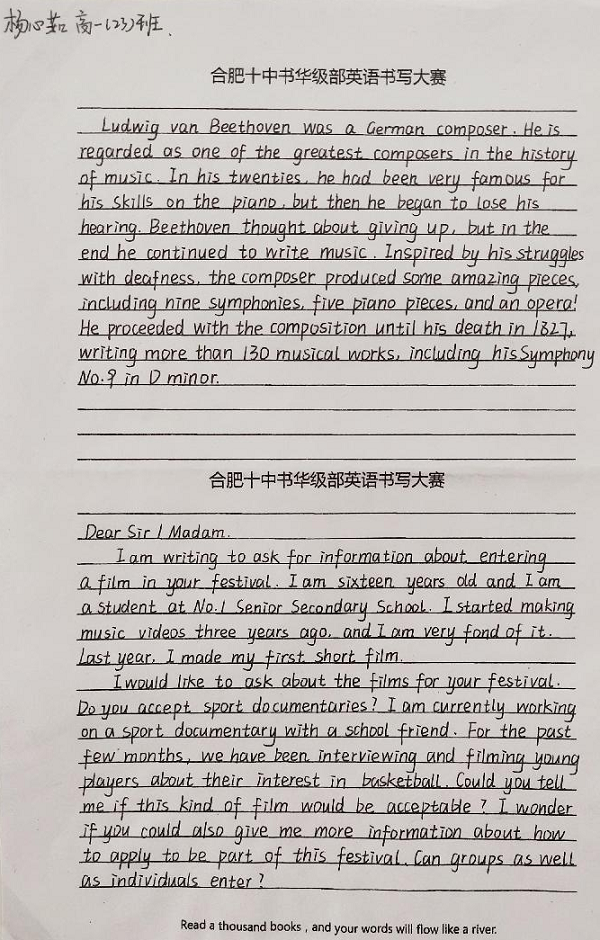 杨心茹 高一(23)班.
合肥十中书华级部英语书写大赛
Ludwig van Beethoven was a German composer. He is
regarded as one of the greatest composers in the history
of music. In his twenties, he had been very famous for
his skills on the piano, but then he began to lose his
hearing. Beethoven thought about giving up, but in the
end he continued to write music. Inspired by his struggles
with deafness, the composer produced some amazing pieces,
including nine symphonies, five piano pieces, and an opera!
He proceeded with the composition until his death in 1827,
writing more than 130 musical works, including his Symphony
No.9 in D minor.
合肥十中书华级部英语书写大赛
Dear Sir / Madam.
I am writing to ask for information about entering
a film in your festival. I am sixteen years old and I am
a student at No.1 Senior Secondary School. I started making
music videos three years ago, and I am very fond of it.
Last year, I made my first short film.
I would like to ask about the films for your festival.
Do you accept sport documentaries? I am currently working
on a sport documentary with a school friend. For the past
few months, we have been interviewing and filming young
players about their interest in basketball. Could you tell
me if this kind of film would be acceptable? I wonder
if you could also give me more information about how
to apply to be part of this festival. Can groups as well
as individuals enter?
Read a thousand books , and your words will flow like a river.